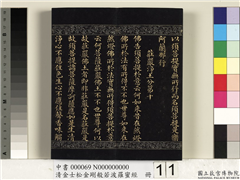 以須菩提實無所行而名須菩提是樂
阿蘭那行
莊嚴淨土分第十
佛告須菩提於意云何如來昔在然燈
佛所於法有所得不不也世尊如來在
然燈佛所於法實無所得須菩提於意
云何菩薩莊嚴佛土不不也世尊何以
故莊嚴佛土者即非莊嚴是名莊嚴是
故須菩提諸菩薩摩訶薩應如是生清
淨心不應住色生心不應住聲香味觸
中書 000069 N000000000
清金士松金剛般若波羅蜜經 冊
11
國立故宮博物院